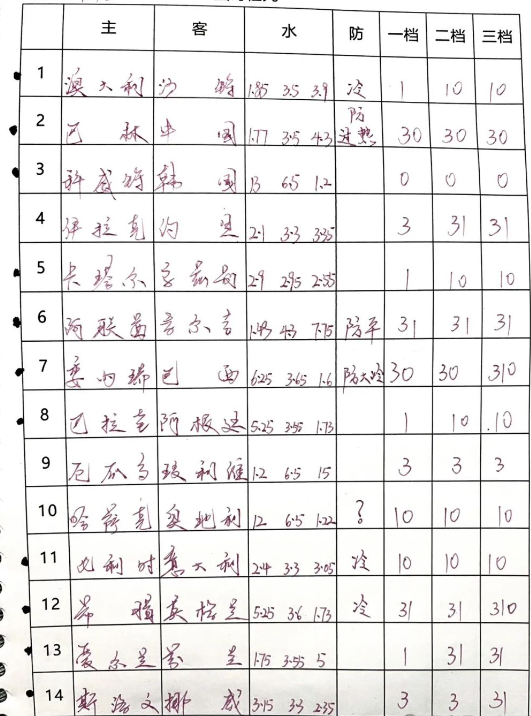 主 客 水 防 一档 二档 三档
1 澳大利 沙特 1.85 3.5 3.9 冷 1 10 10
2 巴林 中国 1.77 3.5 4.3 防过热 30 30 30
3 科威特 韩国 13 6.5 1.2 0 0 0
4 伊拉克 约旦 2.1 3.3 3.35 3 31 31
5 卡塔尔 2.9 2.95 2.55 1 10 10
6 阿联酋 吉尔吉 1.43 4.3 7.75 防平 31 31 31
7 委内瑞 巴西 6.25 3.65 1.6 防大冷 30 30 310
8 巴拉圭 阿根廷 5.25 3.55 1.73 1 10 10
9 厄瓜多 玻利维 1.2 6.5 15 3 3 3
10 哈萨克 奥地利 12 6.5 1.22 ? 10 10 10
11 比利时 意大利 2.4 3.3 3.05 冷 10 10 10
12 希腊 英格兰 5.25 3.6 1.73 冷 31 31 310
13 爱尔兰 芬兰 1.75 3.55 5 1 31 31
14 斯洛文 挪威 3.15 3.3 2.35 3 3 31